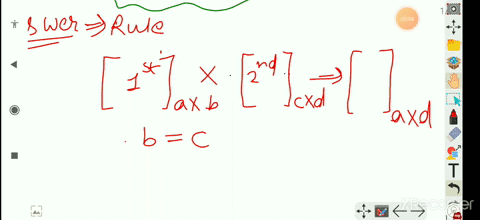 swer ⇒ Rule
[1st]a×b × [2nd]c×d ⇒ [ ]a×d
b = c